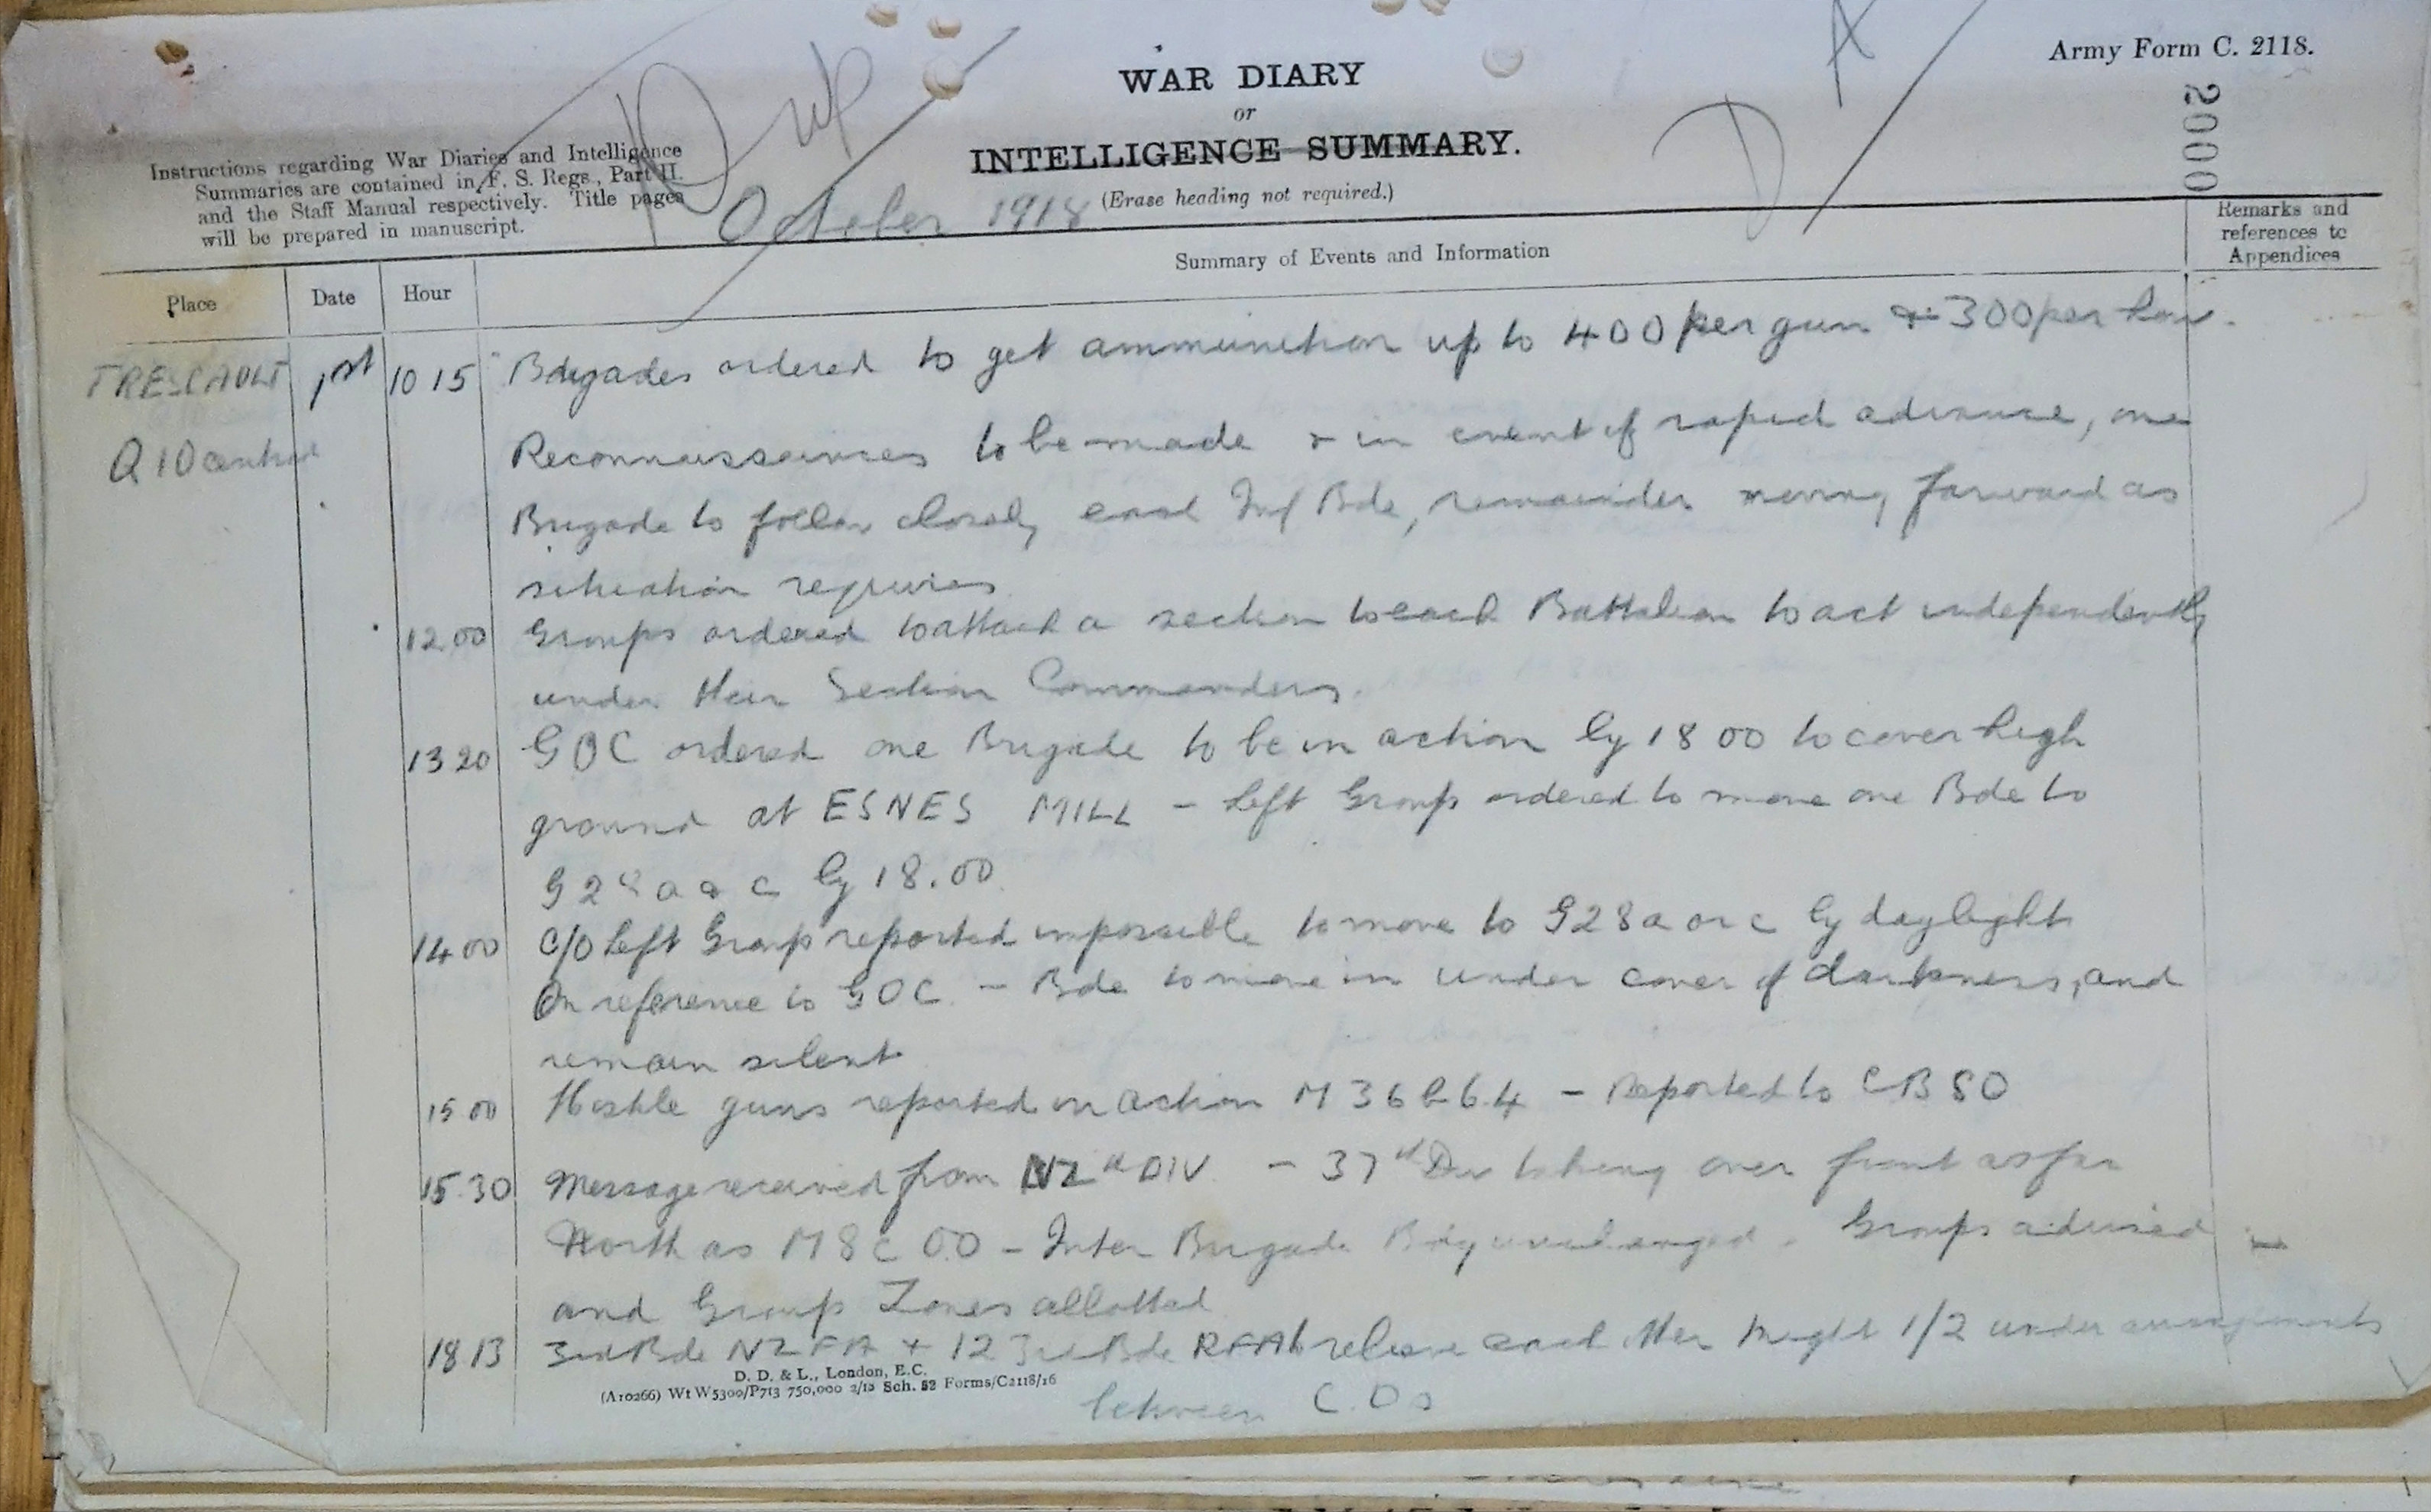 Dup
A
D
Army Form C. 2118.
0002
WAR DIARY
or
INTELLIGENCE SUMMARY.
(Erase heading not required.)
Instructions regarding War Diaries and Intelligence
Summaries are contained in F. S. Regs., Part II.
and the Staff Manual respectively. Title pages
will be prepared in manuscript.
October 1918
Place Date Hour Summary of Events and Information Remarks and references to Appendices
TRESCAULT 1st 10 15 Brigades ordered to get ammunition up to 400 per gun & 300 per how.
Q 10 central Reconnaissances to be made & in event of rapid advance, one
Brigade to follow closely each Inf Bde, remainder moving forward as
situation requires
12.00 Groups ordered to attach a section to each Battalion to act independently
under their Section Commanders.
13 20 GOC ordered one Brigade to be in action by 18 00 to cover high
ground at ESNES MILL - Left Group ordered to move one Bde to
G28 a & c by 18.00
14 00 C/O Left Group reported impossible to move to G28a or c by daylight
On reference to GOC - Bde to move in under cover of darkness, and
remain silent
15 00 Hostile guns reported in action M 36 b 6.4 - Reported to CBSO
15.30 Message received from NZ DIV. - 37th Div taking over front as far
North as M 8 c 0.0 - Inter Brigade Bdy unchanged. Groups advised
and Group Zones allotted
18 13 3rd Bde NZFA + 123rd Bde RFA to relieve each other night 1/2 under arrangements
between C.Os
D. D. & L., London, E.C.
(A10266) Wt W5300/P713 750,000 2/18 Sch. 52 Forms/C2118/16